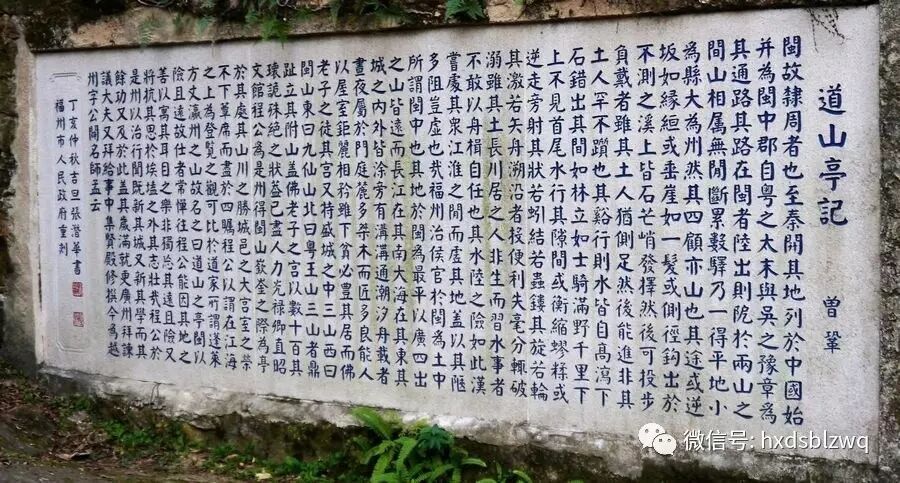 道山亭記 曾鞏
閩故隸周者也至秦開其地列於中國始
并為閩中郡自粵之太末與吳之豫章為
其通路其路在閩者陸出則阸於兩山之
間山相属無間斷累數驛乃一得平地小
為縣大為州然其四顧亦山也其途或逆
坂如緣絙或垂崖如一髮或側徑鈎出於
不測之溪上皆石芒峭發擇然後可投步
負戴者雖其土人猶側足然後能進非其
土人罕不躓也其谿行則水皆自高瀉下
石錯出其間如林立如士騎滿野千里下
上不見首尾水行其隙間或衡縮蟉糅或
逆走旁射其狀若蚓結若蟲鏤其旋若輪
其激若矢舟溯沿者投便利失毫分輒破
溺雖其土長川居之人非生而習水事者
不敢以舟楫自任也其水陸之險如此漢
嘗處其眾江淮之間而虛其地蓋以其陿
多阻豈虛也哉福州治侯官於閩為土中
所謂閩中也其地於閩為最平以廣四出
之山皆遠而長江在其南大海在其東其
城之内外皆涂旁有溝溝通潮汐舟載者
晝夜屬於門庭麓多桀木而匠多良能人
以屋室鉅麗相矜雖下貧必豐其居而佛
老子之徒其宮又特盛城之中三山西曰
閩山東曰九仙山北曰粵王山三山者鼎
趾立其附山蓋佛老子之宮以數十百其
瓌詭殊絕之狀蓋已盡人力光祿卿直昭
文館程公為是州得閩山嶔崟之際為亭
於其處其山川之勝城邑之大宮室之榮
不下簟席而盡於四矚程公以謂在江海
之上為登覽之觀可比於道家所謂蓬萊
方丈瀛州之山故名之曰道山之亭閩以
險且遠故仕者常憚往程公能因其地之
善以寓其耳目之樂非獨忘其遠且險又
將抗其思於埃壒之外其志壯哉程公於
是州以治行聞既新其城又新其學而其
餘功又及於此蓋其歲滿就更廣州拜諫
議大夫又拜給事中集賢殿修撰今為越
州字公闢名師孟云
丁亥仲秋吉旦張潛華書
福州市人民政府重刻
微信号: hxdsblzwq